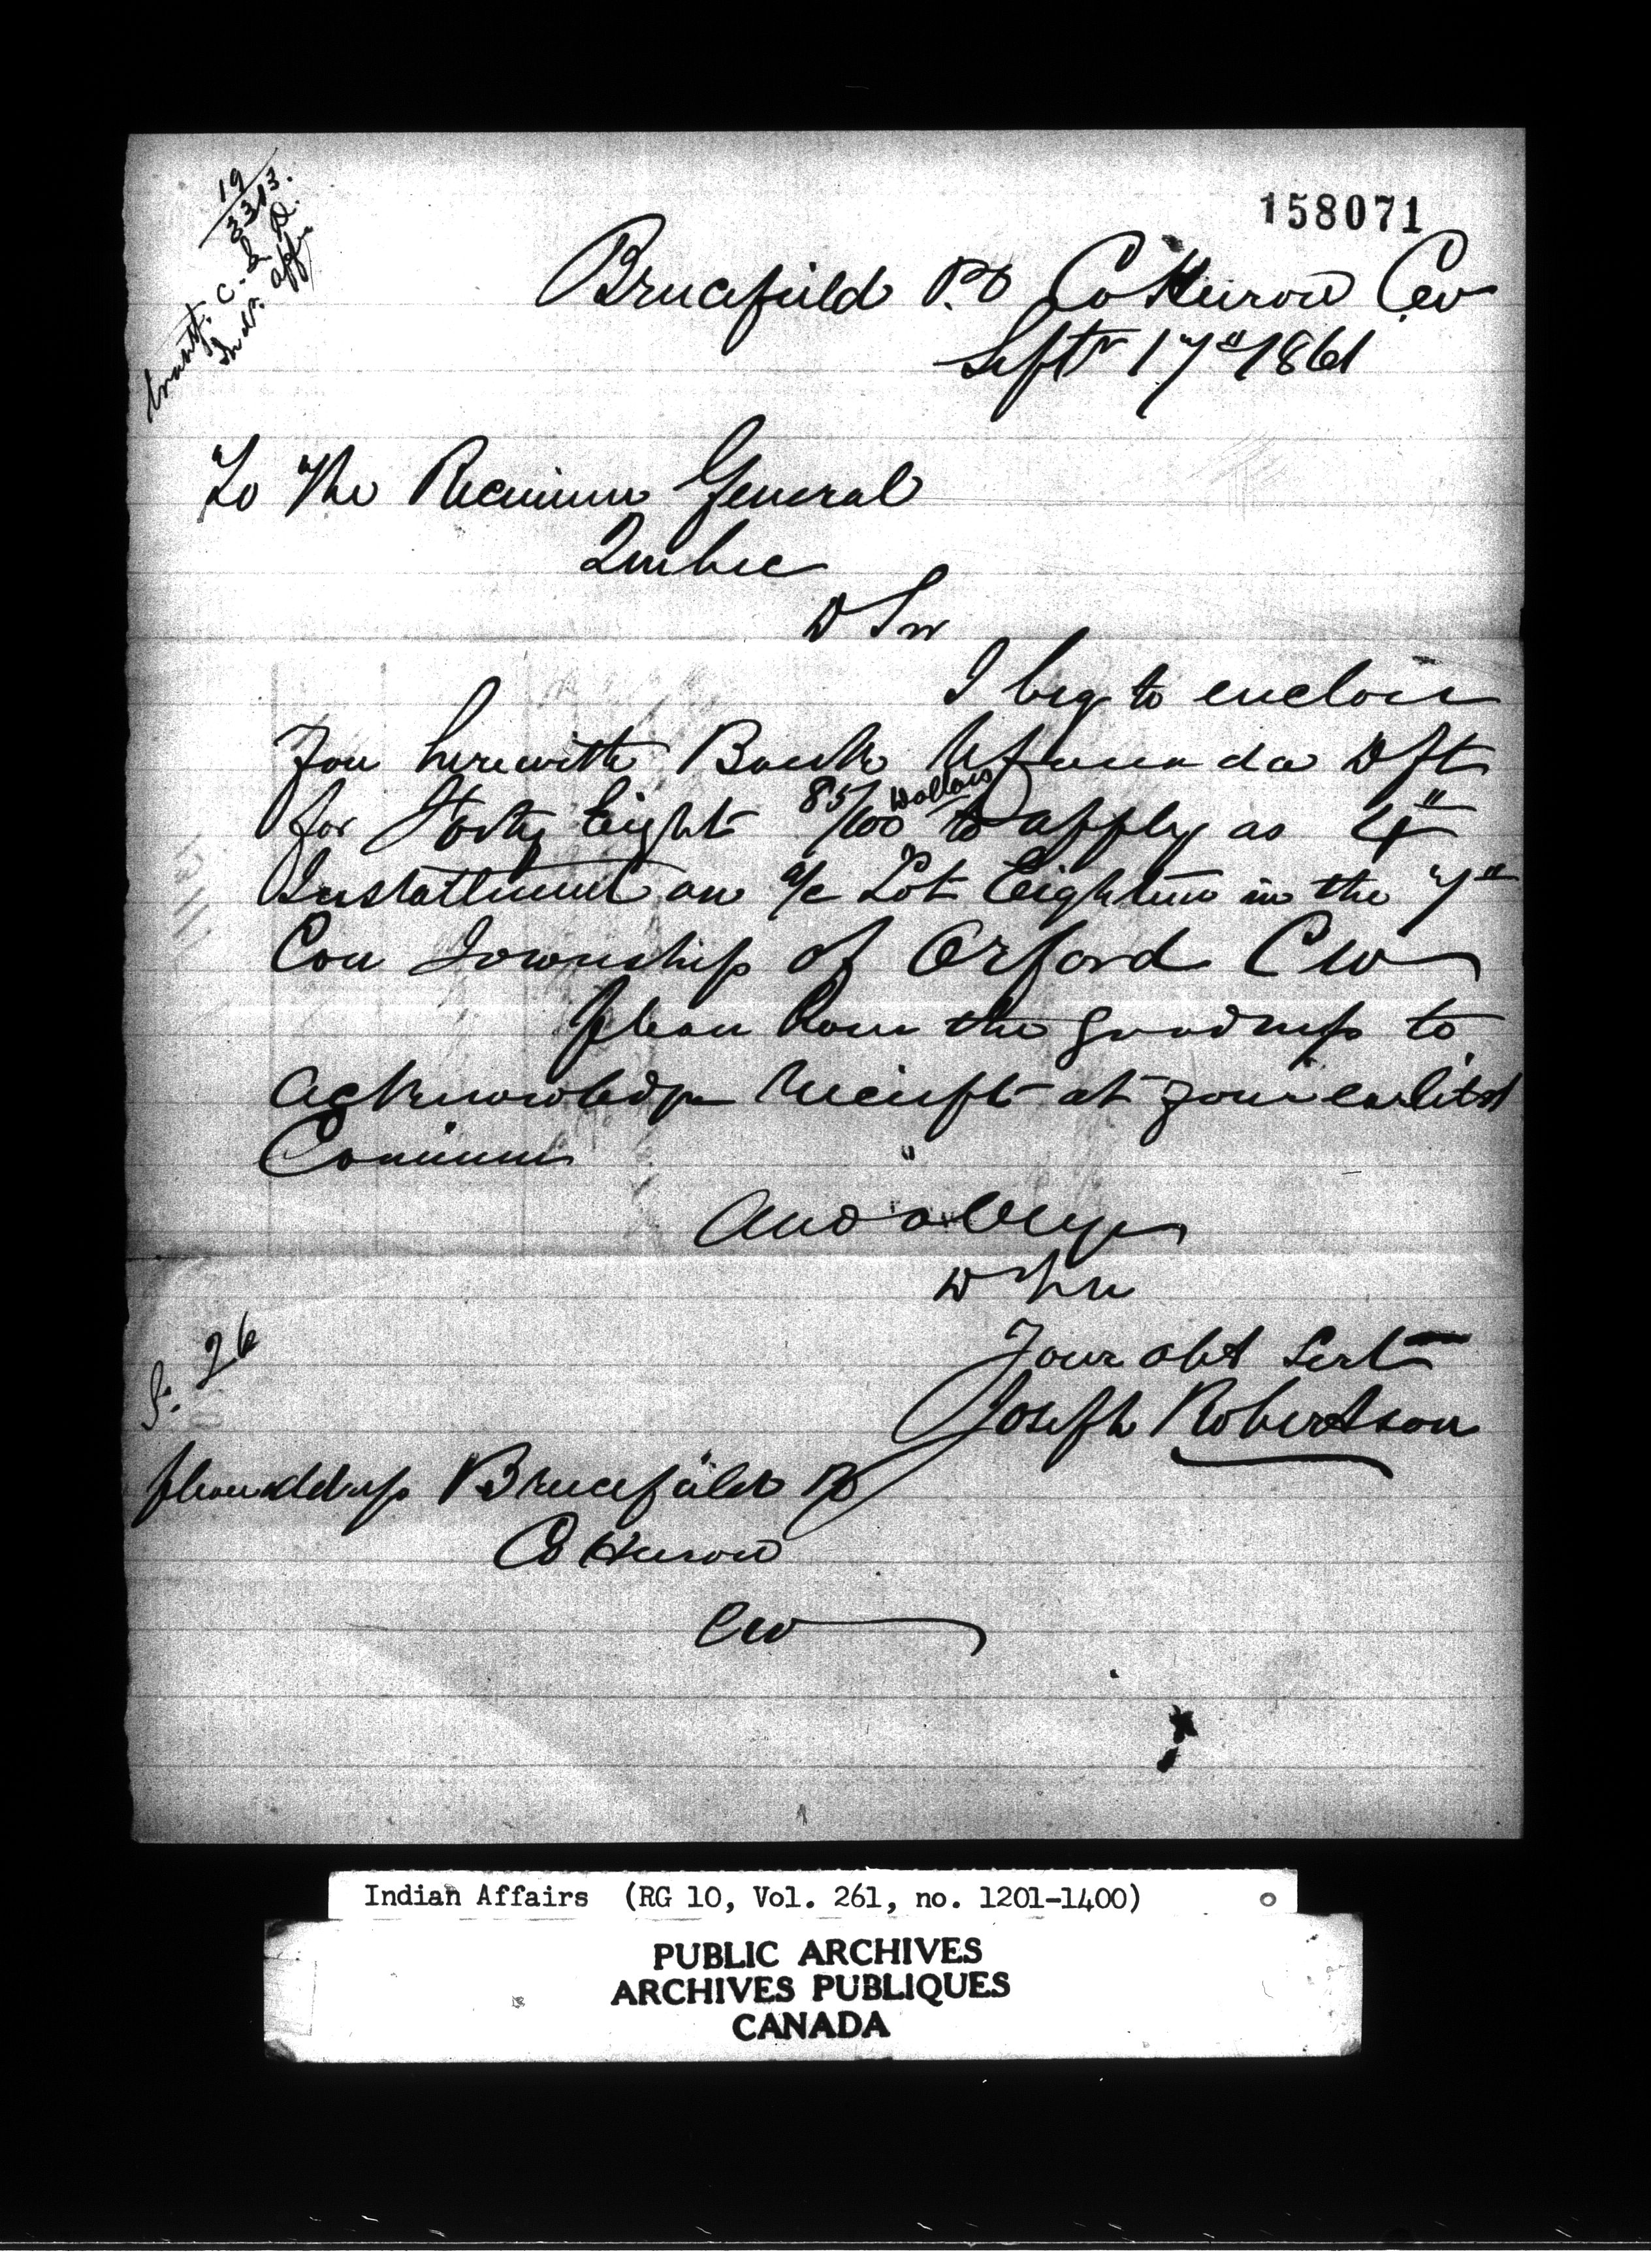 19
3313.
C. L. D.
Indn. Affrs
158071
Brucefield P.O Co Huron C.W
Septr 17th 1861
To The Receiver General
Quebec
D Sir
I beg to enclose
You herewith Bank U Canada Dft
for Forty Eight 85/100 Dollars to apply as 4th
Installment on a/c Lot Eighteen in the 7th
Con Township of Orford C W
please have the goodness to
acknowledge Receipt at your earliest
And oblige
D Sir
Your obt Servt
Joseph Robertson
S. 26
please address Brucefield PO
Co Huron
CW
Indian Affairs (RG 10, Vol. 261, no. 1201-1400)
PUBLIC ARCHIVES
ARCHIVES PUBLIQUES
CANADA